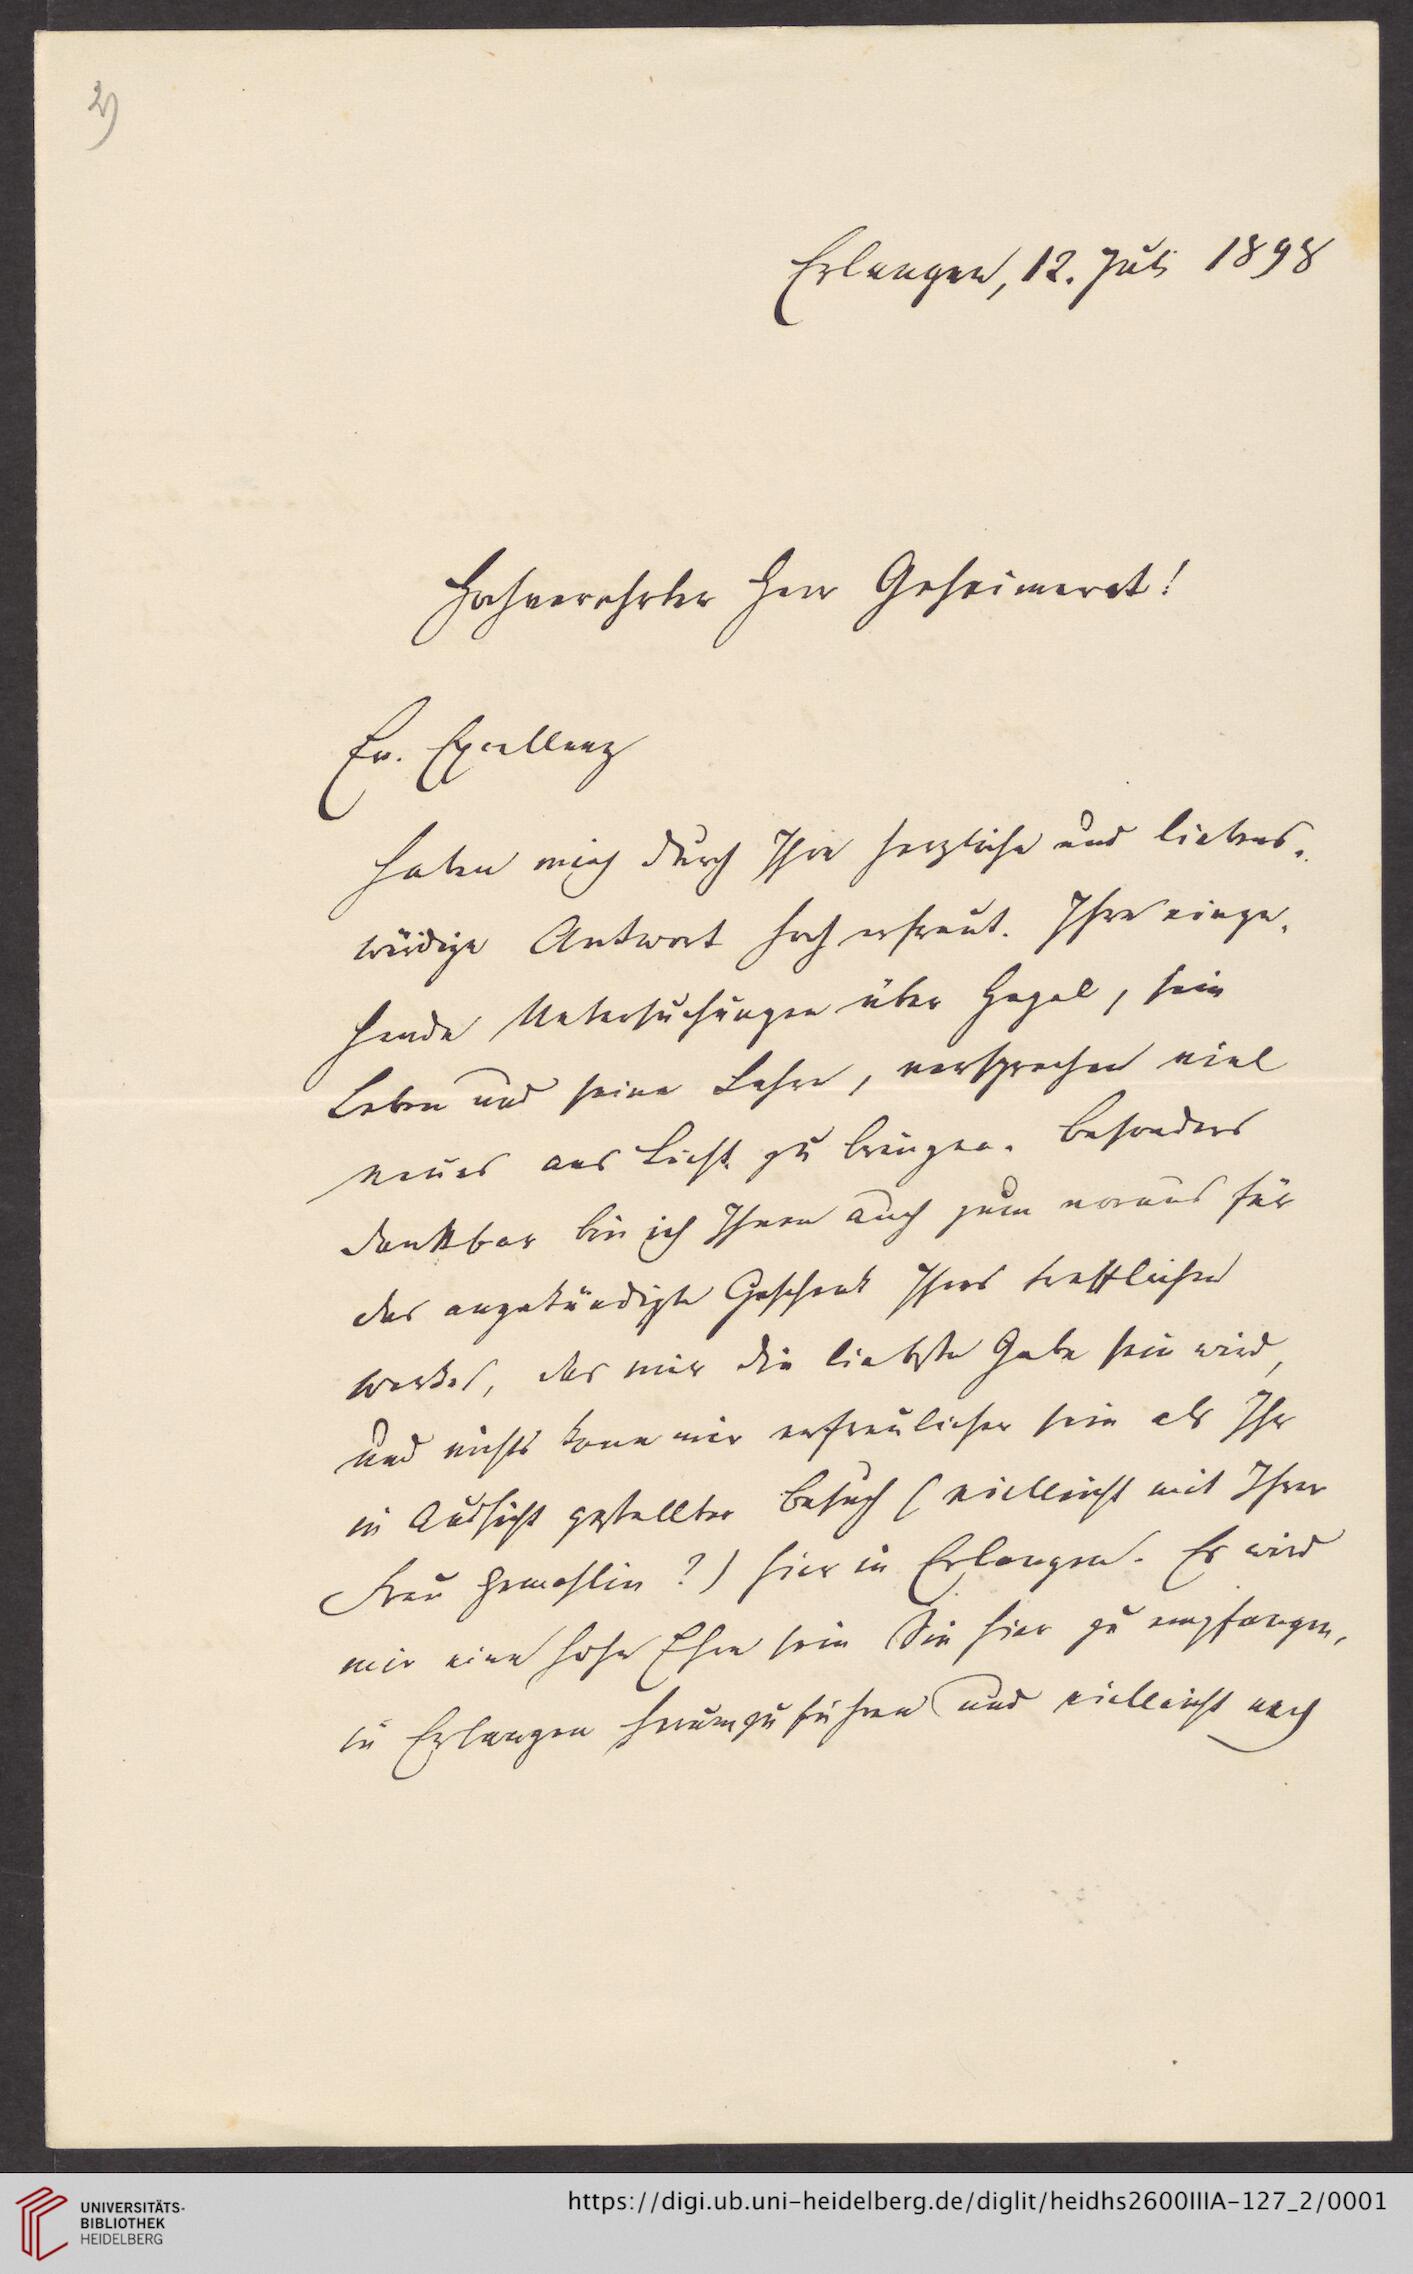 2)
Erlangen, 12. Juli 1898
Hochverehrter Herr Geheimerat!
Ew. Excellenz
haben mich durch Ihre herzliche und liebens-
würdige Antwort hoch erfreut. Ihre einge-
hende Untersuchungen über Hegel, sein
Leben und seine Lehre, versprechen viel
neues ans Licht zu bringen. Besonders
dankbar bin ich Ihnen auch zum voraus für
das angekündigte Geschenk Ihres trefflichen
Werkes, das mir die liebste Gabe sein wird,
und nichts kann mir erfreulicher sein als Ihr
in Aussicht gestellter Besuch (vielleicht mit Ihrer
Frau Gemahlin?) hier in Erlangen. Es wird
mir eine hohe Ehre sein Sie hier zu empfangen,
in Erlangen herumzuführen und vielleicht nach
UNIVERSITÄTS-
BIBLIOTHEK
HEIDELBERG
https://digi.ub.uni-heidelberg.de/diglit/heidhs2600IIIA-127_2/0001